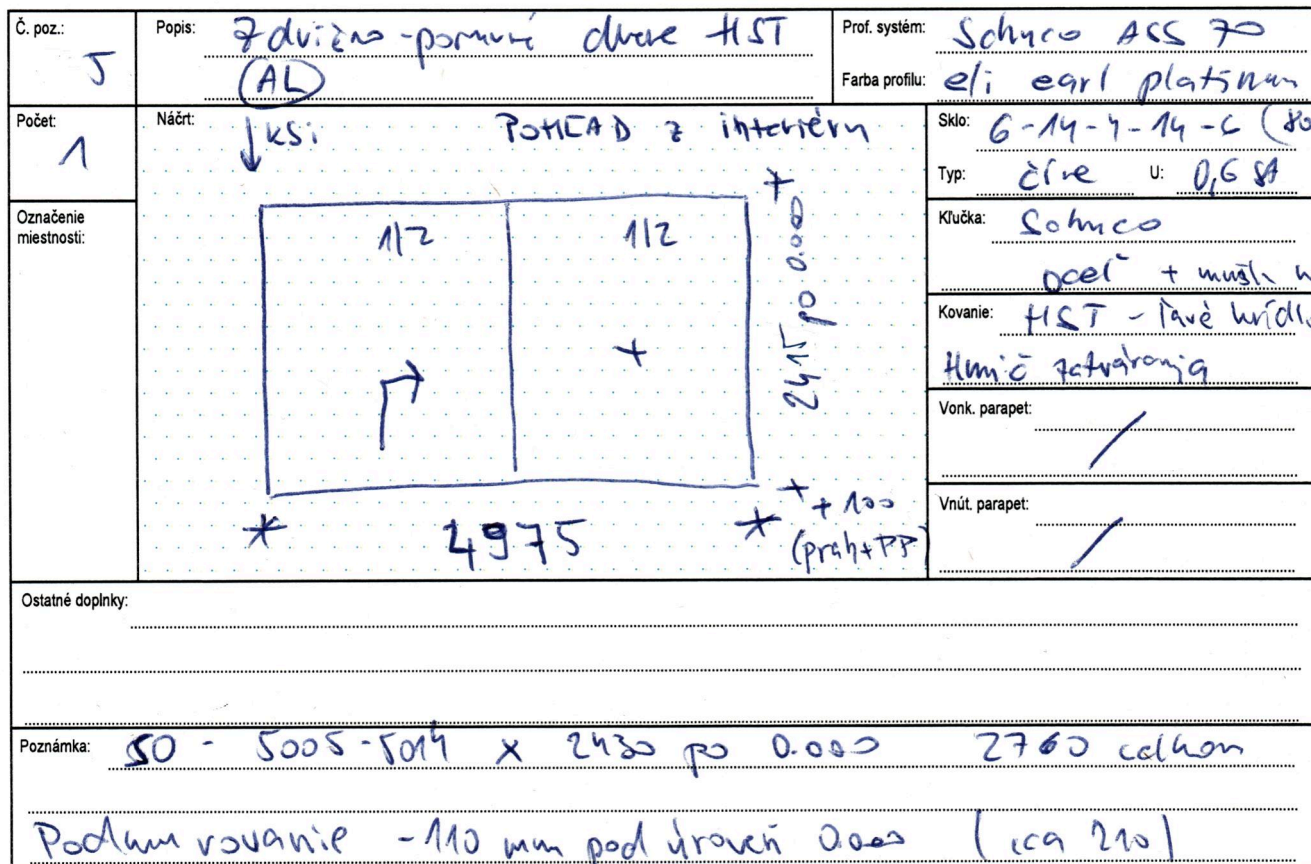 Č. poz.: 5
Popis: Zdvižno-posuvné dvere HST
(AL)
Prof. systém: Schüco ASS 70
Farba profilu: eli earl platinum
Počet: 1
Náčrt: ksi POHĽAD z interiéru
Označenie
miestnosti:
1/2 1/2
2415 po 0.000
4975
+ 100
(prah+PP)
Sklo: 6-14-4-14-6
Typ: číre U: 0,6
Kľučka: Schüco
oceľ + mušľa
Kovanie: HST - ľavé krídlo
tlmič zatvárania
Vonk. parapet:
Vnút. parapet:
Ostatné doplnky:
Poznámka: SO - 5005-5014 x 2430 po 0.000 2760 celkom
Podmurovanie -110 mm pod úroveň 0.000 (cca 210)